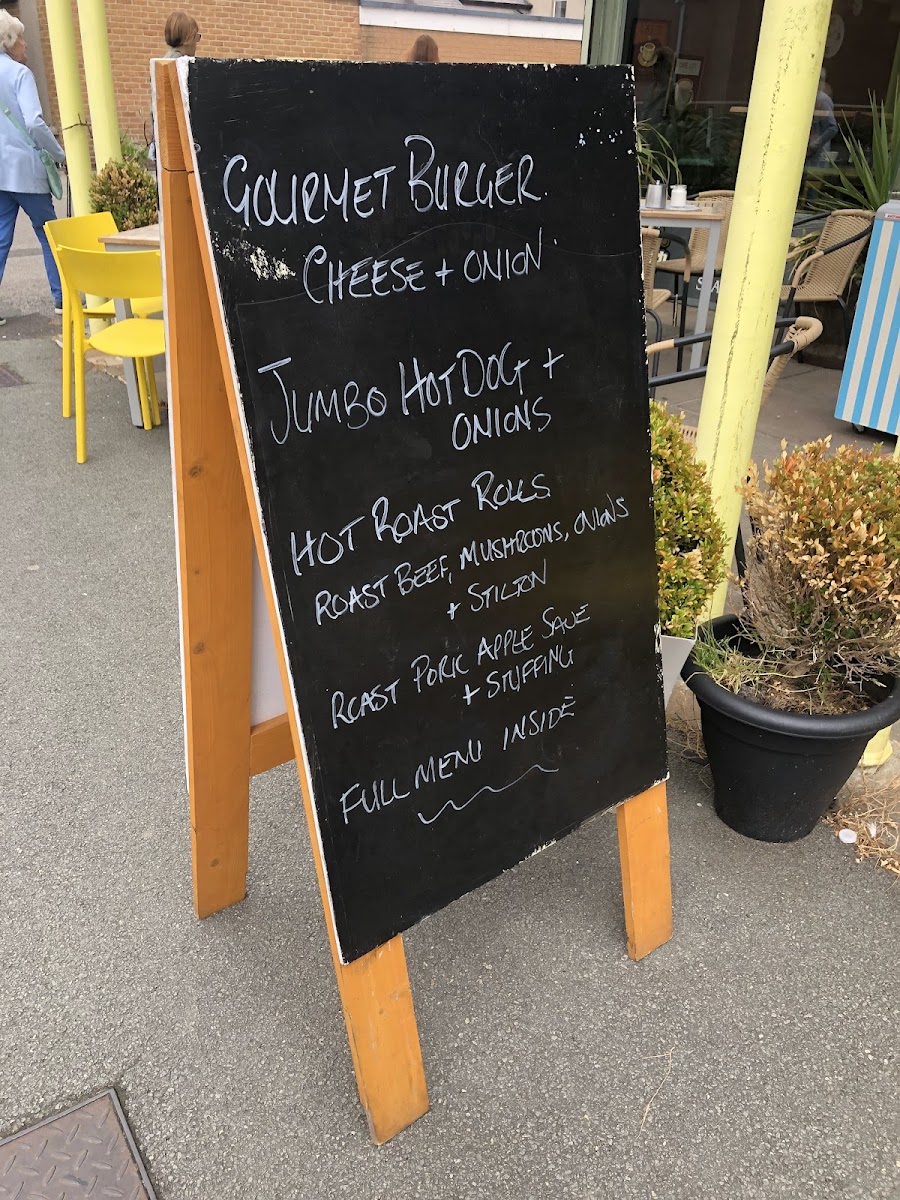 GOURMET BURGER.
CHEESE + ONION
JUMBO HOT DOG +
ONIONS
HOT ROAST ROLLS
ROAST BEEF, MUSHROOMS, ONIONS
+ STILTON
ROAST PORK APPLE SAUE
+ STUFFING
FULL MENU INSIDE